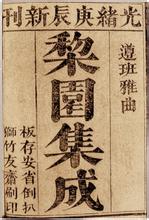 光緒庚辰新刊
遵班雅曲
梨園集成
板存安省倒扒
獅竹友齋刷印